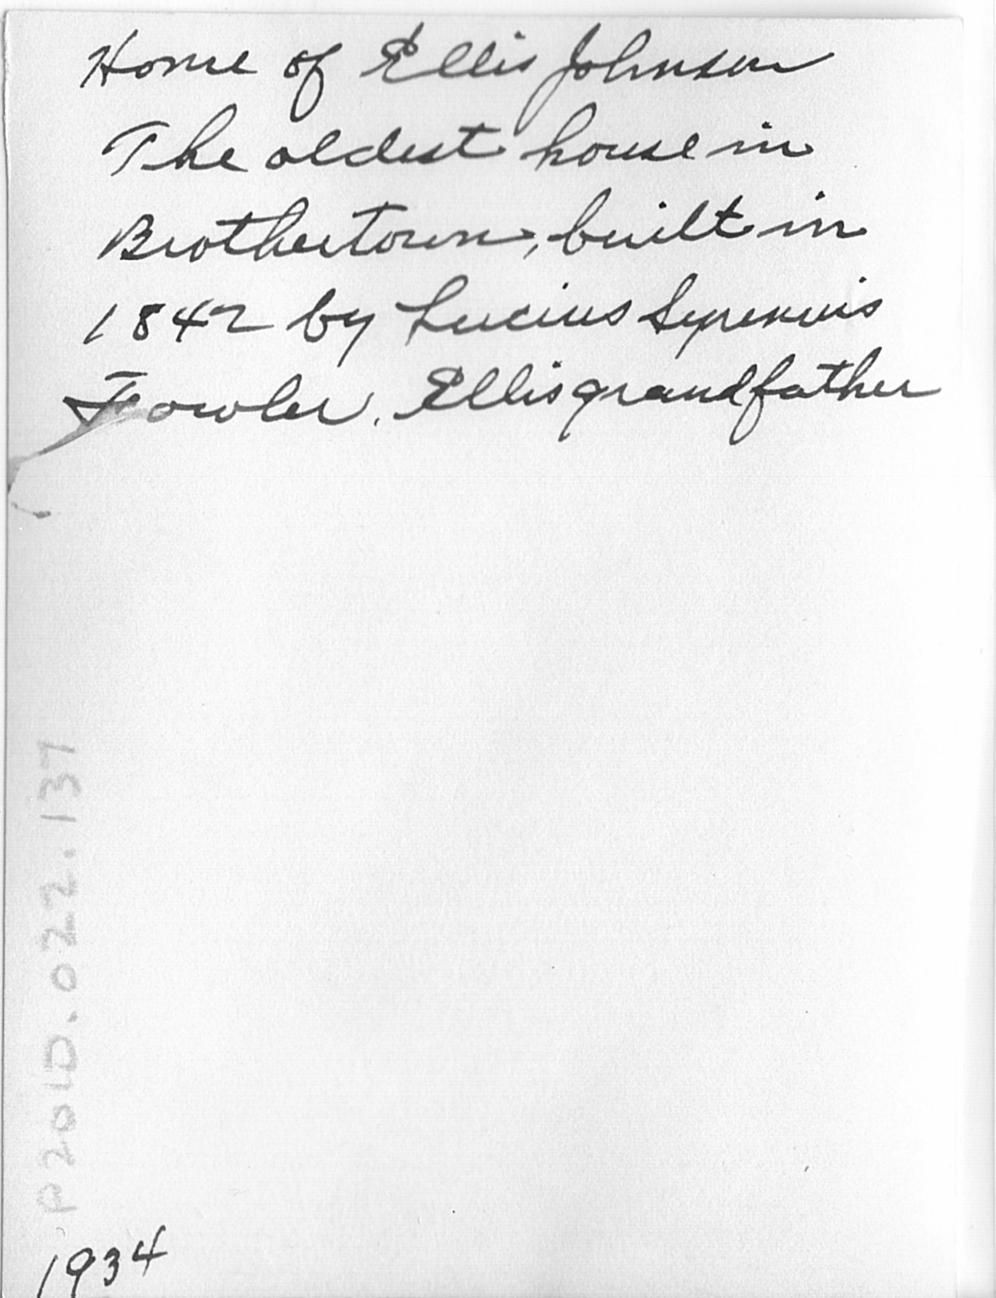 Home of Ellis Johnson
The oldest house in
Brothertown, built in
1842 by Lucius Syrenuis
Fowler. Ellis grandfather
P2010.022.137
1934